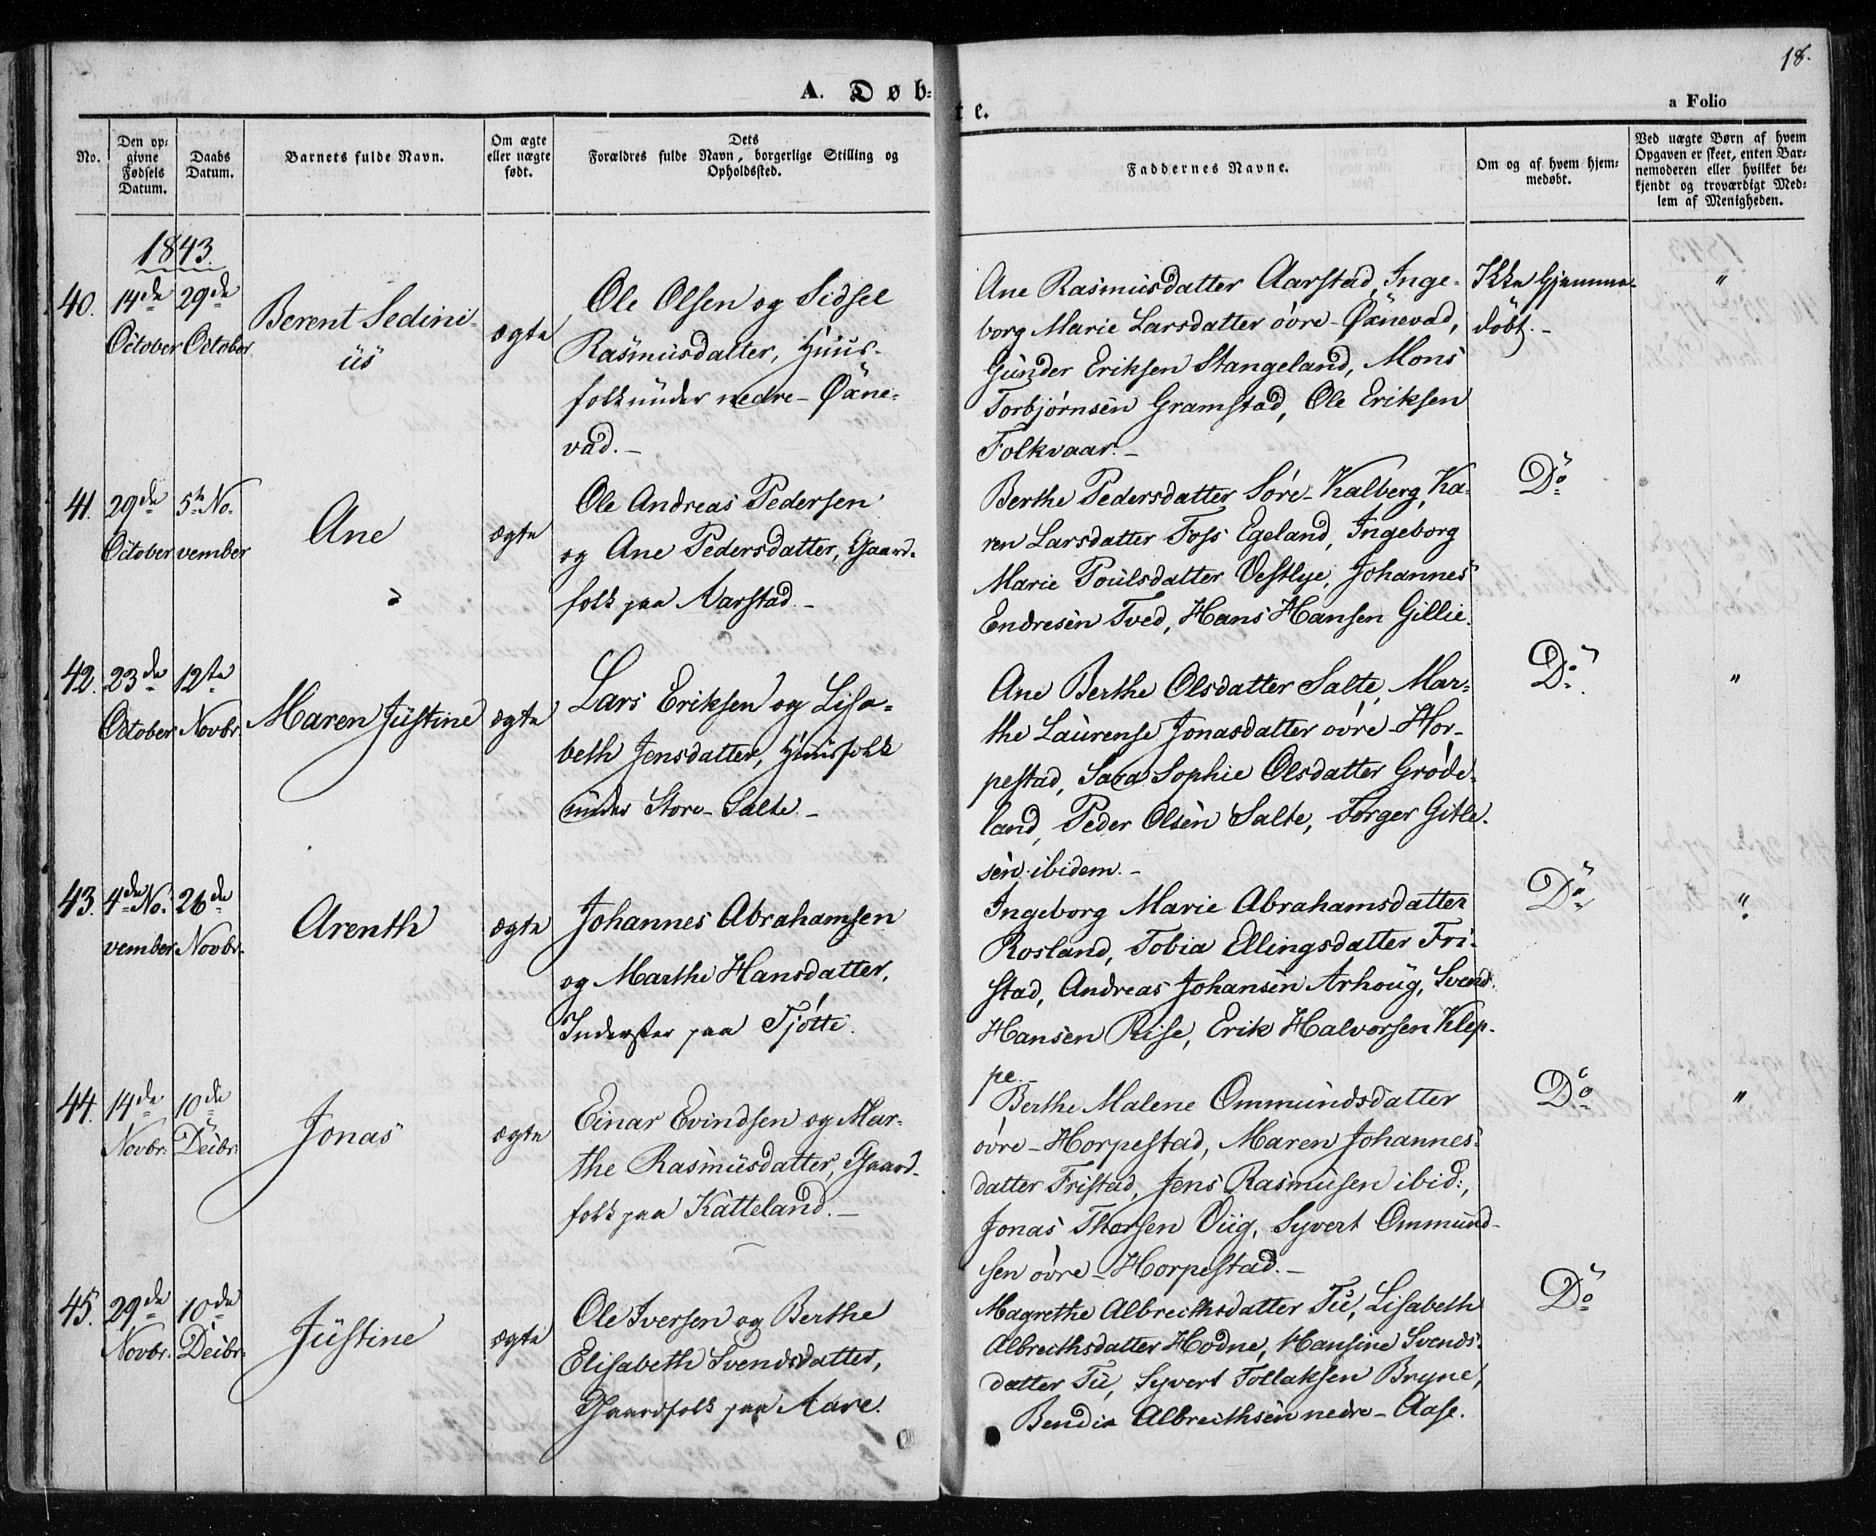 18.
A. Døbte.
a Folio
No.
Den op-
givne
Fødsels
Datum.
Daabs
Datum.
Barnets fulde Navn.
Om ægte
eller uægte
født.
Dets
Forældres fulde Navn, borgerlige Stilling og
Opholdssted.
Faddernes Navne.
Om og af hvem hjem-
medøbt.
Ved uægte Børn af hvem
Opgaven er skeet, enten Bar-
nemoderen eller hvilket be-
kjendt og troværdigt Med-
lem af Menigheden.
1843.
40.
14de
October
29de
October
Berent Sedini-
üs
ægte
Ole Olsen og Sidsel
Rasmüsdatter, Huus-
folk ünder nedre-Øxne-
vad.-
Ane Rasmüsdatter Aarstad, Inge-
borg Marie Larsdatter övre-Øxnevad,
Günder Eriksen Stangeland, Mons
Torbjørnsen Gramstad, Ole Eriksen
Folkvaar.-
Ikke hjemme-
döbt.-
"
41.
29de
October
5te No-
vember
Ane
ægte
Ole Andreas Pedersen
og Ane Pedersdatter, Gaard-
folk paa Aarstad.-
Berthe Pedersdatter Söre-Kalberg, Ka-
ren Larsdatter Foss Egeland, Ingeborg
Marie Poulsdatter Vestlye, Johannes
Endresen Tved, Hans Hansen Gillie.
Do
42.
23de
October
12te
Novbr.
Maren Jüstine
ægte
Lars Eriksen og Lisa-
beth Jensdatter, Huusfolk
ünder Store-Salte.-
Ane Berthe Olsdatter Salte, Mar-
the Laürense Jonasdatter övre-Hor-
pestad, Sara Sophie Olsdatter Gröde-
land, Peder Olsen Salte, Torger Gitle-
sen ibidem.-
Do.
"
43.
4de No-
vember
26de
Novbr.
Arenth
ægte
Johannes Abrahamsen
og Marthe Hansdatter,
Inderster paa Tjötte.
Ingeborg Marie Abrahamsdatter
Rosland, Tobia Ellingsdatter Fri-
stad, Andreas Johansen Arhoüg, Svend
Hansen Riise, Erik Halvorsen Klep-
pe.
Do
"
44.
14de
Novbr.
10de
Decbr.
Jonas
ægte
Einar Evindsen og Mar-
the Rasmüsdatter, Gaard-
folk paa Katteland.-
Berthe Malene Ommündsdatter
övre-Horpestad, Maren Johannes-
datter Fristad, Jens Rasmüsen ibid:,
Jonas Thorsen Viig, Syvert Ommünd-
sen övre-Horpestad.-
Do
"
45.
29de
Novbr.
10de
Decbr.
Jüstine
ægte
Ole Iversen og Berthe
Elisabeth Svendsdatter,
Gaardfolk paa Aare.
Magrethe Albrecthsdatter Tü, Lisabeth
Albrecthsdatter Hodne, Hansine Svends-
datter Tü, Syvert Tollaksen Bryne,
Bendix Albrecthsen nedre-Aase.
Do